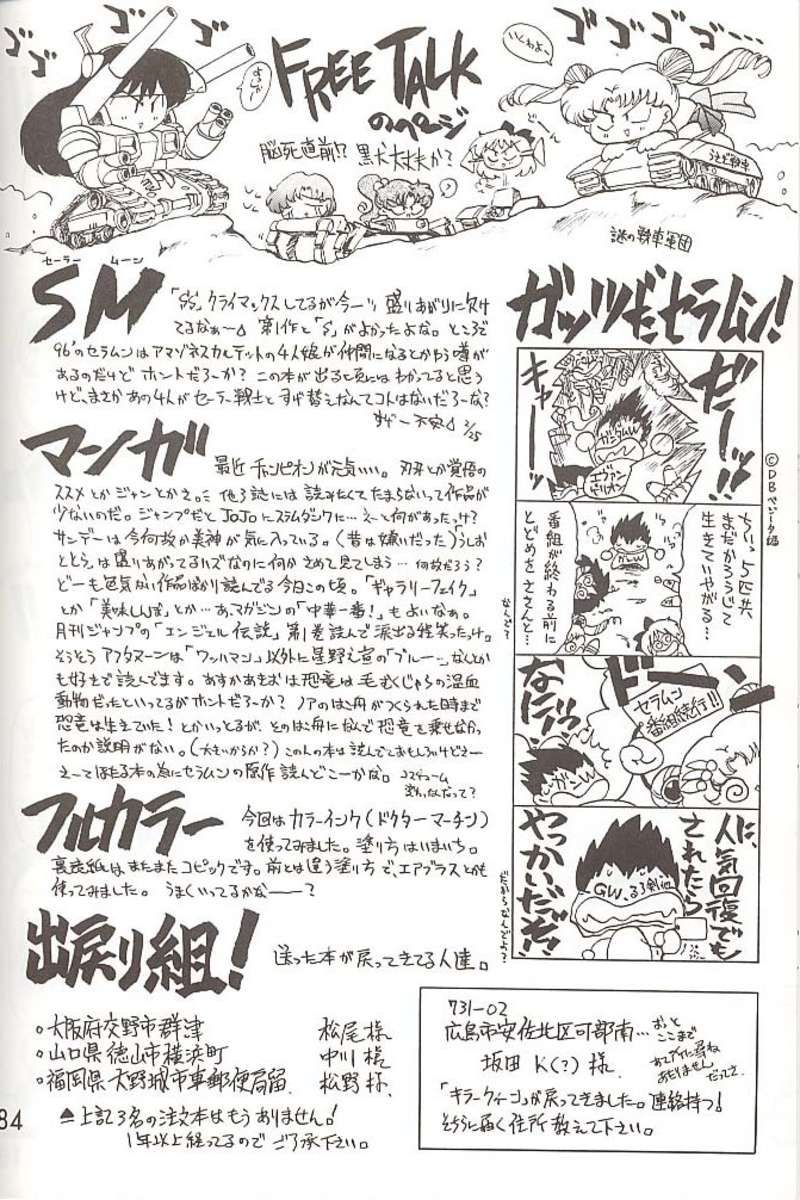 ゴゴゴ
ゴゴゴゴ…
よっしゃー
いくわよー
FREE TALK
のページ
脳死直前!?黒犬大丈夫か?
うさぎ戦車
謎の戦車軍団
セーラー ムーン
SM
「SS」クライマックスしてるが今一ツ盛りあがりに欠け
てるなぁ〜 第1作と「S」がよかったよな。ところで
96'のセラムンはアマゾネスカルテットの4人娘が仲間になるとかゆう噂が
あるのだけどホントだろーか?この本が出ると頃にはわかってると思う
けど、まさかあの4人がセーラー戦士とすげ替えなんてコトはないだろーな?
すげー不安 2/25
マンガ
最近チャンピオンが元気いい。刃牙とか覚悟の
ススメとかジャンとかさ。 他3誌には読みたくてたまらないって作品が
少ないのだ。ジャンプだとJoJoにスラムダンクに…えーと何があったっけ?
サンデーは今何故か美神が気に入っている。(昔は嫌いだった)うしお
ととらは盛りあがってるハズなのに何かさめて見てしまう…何故だろう?
どーも色気ない作品ばかり読んでる今日この頃。「ギャラリーフェイク」
とか「美味しんぼ」とか…あ、マガジンの「中華一番!」もよいなぁ。
月刊ジャンプの「エンジェル伝説」第1巻読んで涙出る程笑ったっけ。
そうそうアフタヌーンは「ワッハマン」以外に星野之宣の「ブルー…」なんとか
も好きで読んでます。あすかあきおは恐竜は毛むくじゃらの温血
動物だったといってるがホントだろーか?ノアのはこ舟がつくられた時まで
恐竜は生きていた!とかいっとるが、そのはこ舟になんで恐竜を乗せなかっ
たのか説明がない。(大きいからか?)この人の本は読んでておもしろいけどさー
えーてほたる本の為にセラムンの原作読んどこーかな。
コスチューム
変わったなんだって?
フルカラー
今回はカラーインク(ドクターマーチン)
を使ってみました。塗り方はいまいち。
裏表紙はまたまたコピックです。前とは違う塗り方で、エアブラスとかも
使ってみました。うまくいってるかな——?
出戻り組!
送った本が戻ってきてる人達。
○大阪府交野市群津 松尾様
○山口県徳山市横浜町 中川様
○福岡県大野城市東郵便局留 松野様
▲上記3名の注文本はもうありません!
1年以上経ってるのでご了承下さい。
84
ガッツだセラムン!
©DBベジータ編
だーッ!!
キャーッ
ガンダムW
エヴァンゲリオン
ちいっ 5匹共
まだかろうじて
生きていやがる…
番組が終わる前に
とどめをささんと…
なんで?
ドーン
セラムン
番組続行!!
なにいっ
人気回復でも
されたら
やっかいだぞ!
GW、るろ剣他
だからなんでよ?
731-02
広島市安佐北区可部南…
おっと
ここまで
坂田 K(?)様
「キラークィーン」が戻ってきました。連絡待つ!
そちらに届く住所教えて下さい。